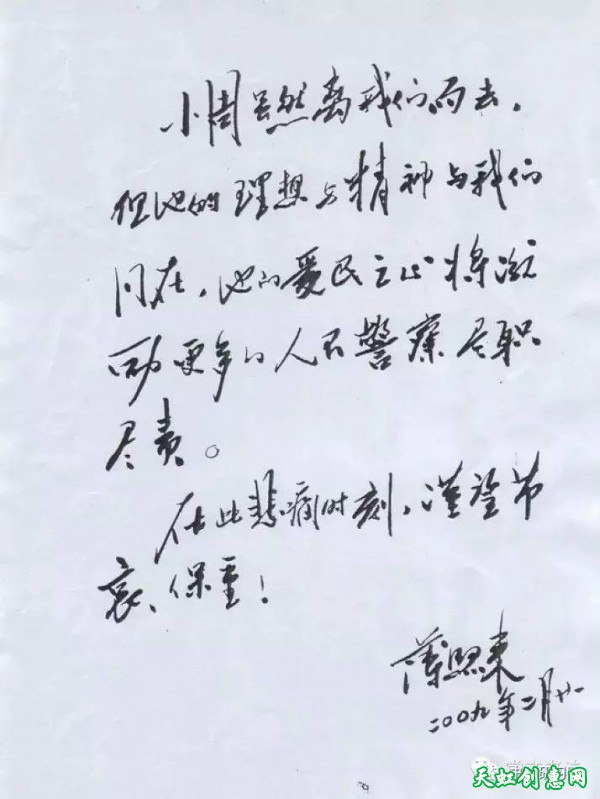 小周虽然离我们而去，
但他的理想与精神与我们
同在，他的爱民之心将激
励更多的人民警察尽职
尽责。
在此悲痛时刻，谨望节
哀、保重！
薄熙来
二00九年二月廿一
天虹创意网